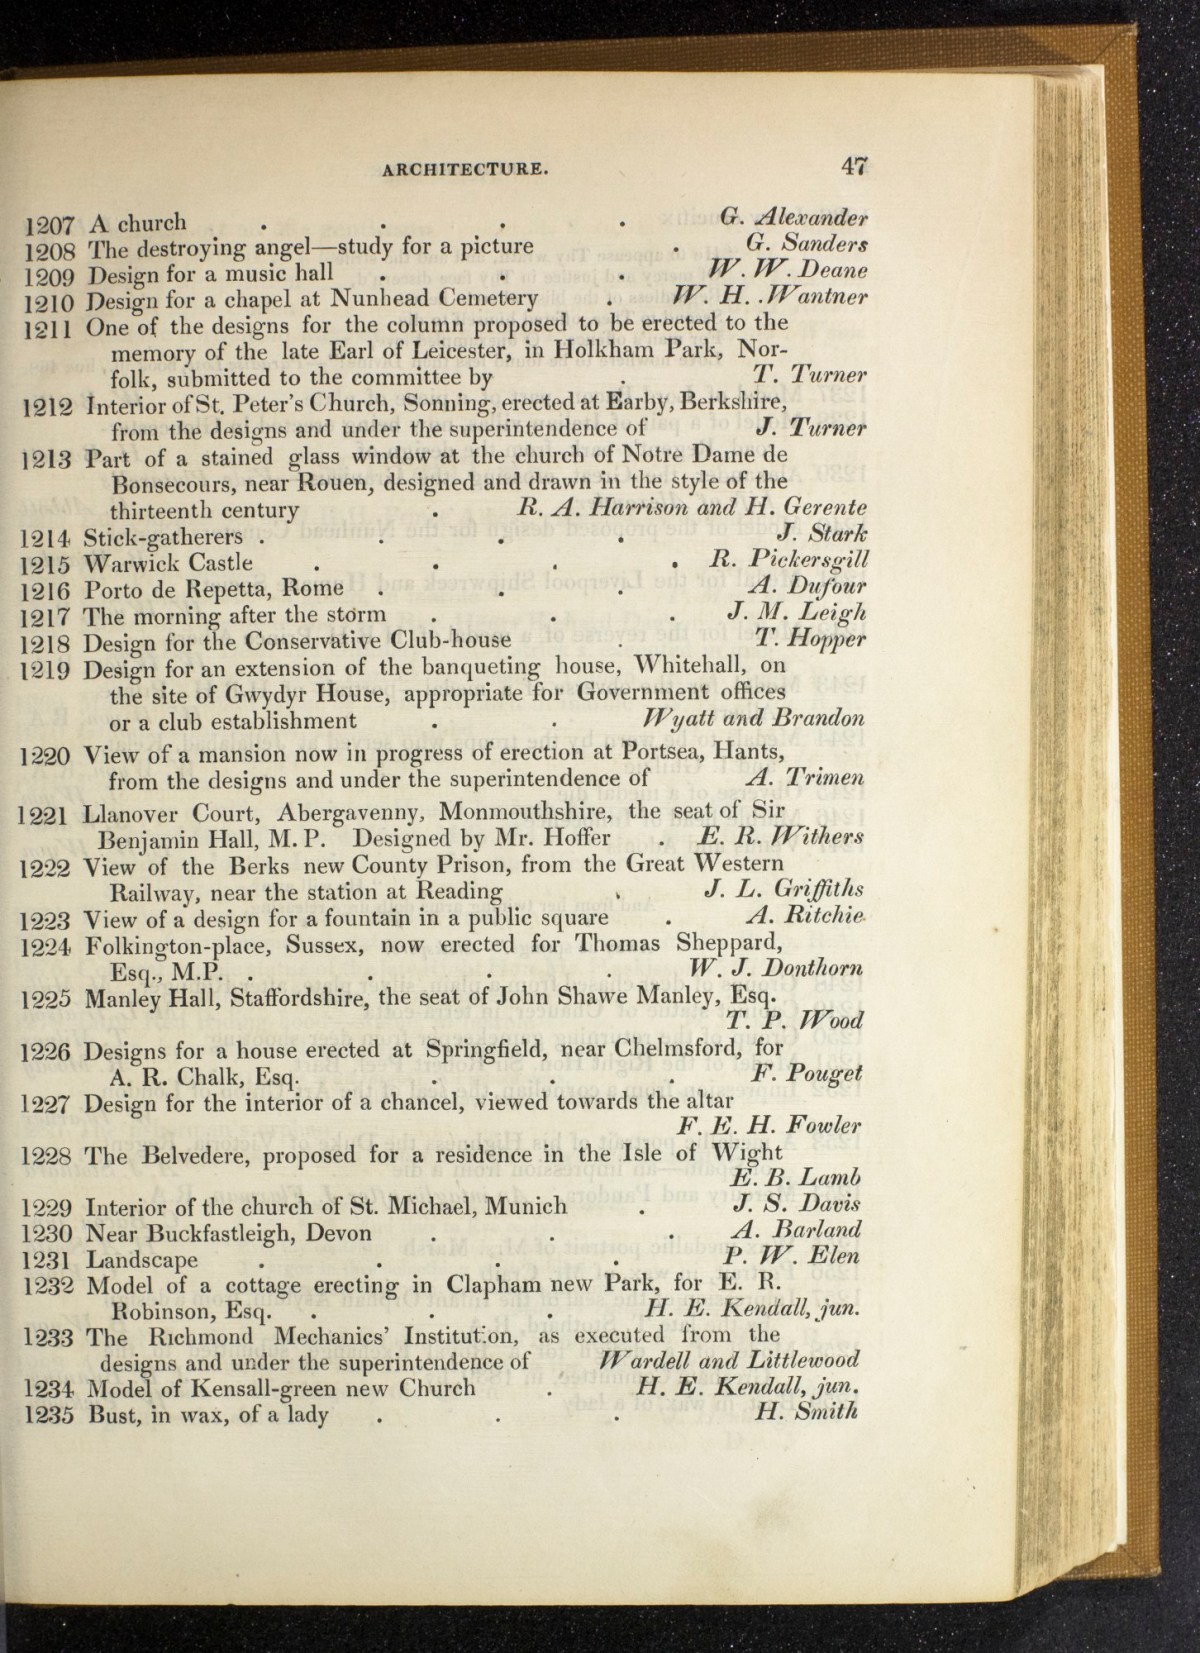 ARCHITECTURE. 47
1207 A church . . . . G. Alexander
1208 The destroying angel—study for a picture . G. Sanders
1209 Design for a music hall . . . W. W. Deane
1210 Design for a chapel at Nunhead Cemetery . W. H. Wantner
1211 One of the designs for the column proposed to be erected to the
memory of the late Earl of Leicester, in Holkham Park, Nor-
folk, submitted to the committee by . T. Turner
1212 Interior of St. Peter's Church, Sonning, erected at Earby, Berkshire,
from the designs and under the superintendence of J. Turner
1213 Part of a stained glass window at the church of Notre Dame de
Bonsecours, near Rouen, designed and drawn in the style of the
thirteenth century . R. A. Harrison and H. Gerente
1214 Stick-gatherers . . . . J. Stark
1215 Warwick Castle . . . . R. Pickersgill
1216 Porto de Repetta, Rome . . . A. Dufour
1217 The morning after the storm . . . J. M. Leigh
1218 Design for the Conservative Club-house . T. Hopper
1219 Design for an extension of the banqueting house, Whitehall, on
the site of Gwydyr House, appropriate for Government offices
or a club establishment . . Wyatt and Brandon
1220 View of a mansion now in progress of erection at Portsea, Hants,
from the designs and under the superintendence of A. Trimen
1221 Llanover Court, Abergavenny, Monmouthshire, the seat of Sir
Benjamin Hall, M. P. Designed by Mr. Hoffer . E. R. Withers
1222 View of the Berks new County Prison, from the Great Western
Railway, near the station at Reading . J. L. Griffiths
1223 View of a design for a fountain in a public square . A. Ritchie
1224 Folkington-place, Sussex, now erected for Thomas Sheppard,
Esq., M.P. . . . . W. J. Donthorn
1225 Manley Hall, Staffordshire, the seat of John Shawe Manley, Esq.
T. P. Wood
1226 Designs for a house erected at Springfield, near Chelmsford, for
A. R. Chalk, Esq. . . . F. Pouget
1227 Design for the interior of a chancel, viewed towards the altar
F. E. H. Fowler
1228 The Belvedere, proposed for a residence in the Isle of Wight
E. B. Lamb
1229 Interior of the church of St. Michael, Munich . J. S. Davis
1230 Near Buckfastleigh, Devon . . . A. Barland
1231 Landscape . . . . P. W. Elen
1232 Model of a cottage erecting in Clapham new Park, for E. R.
Robinson, Esq. . . . H. E. Kendall, jun.
1233 The Richmond Mechanics' Institution, as executed from the
designs and under the superintendence of Wardell and Littlewood
1234 Model of Kensall-green new Church . H. E. Kendall, jun.
1235 Bust, in wax, of a lady . . . H. Smith